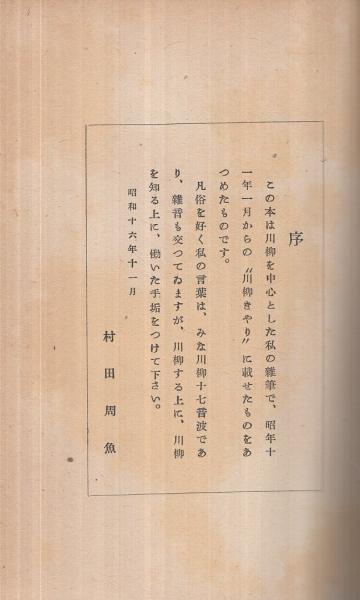 序
この本は川柳を中心とした私の雜筆で、昭年十
一年一月からの〝川柳きやり〟に載せたものをあ
つめたものです。
凡俗を好く私の言葉は、みな川柳十七音波であ
り、雜音も交つてゐますが、川柳する上に、川柳
を知る上に、働いた手垢をつけて下さい。
昭和十六年十一月
村田周魚